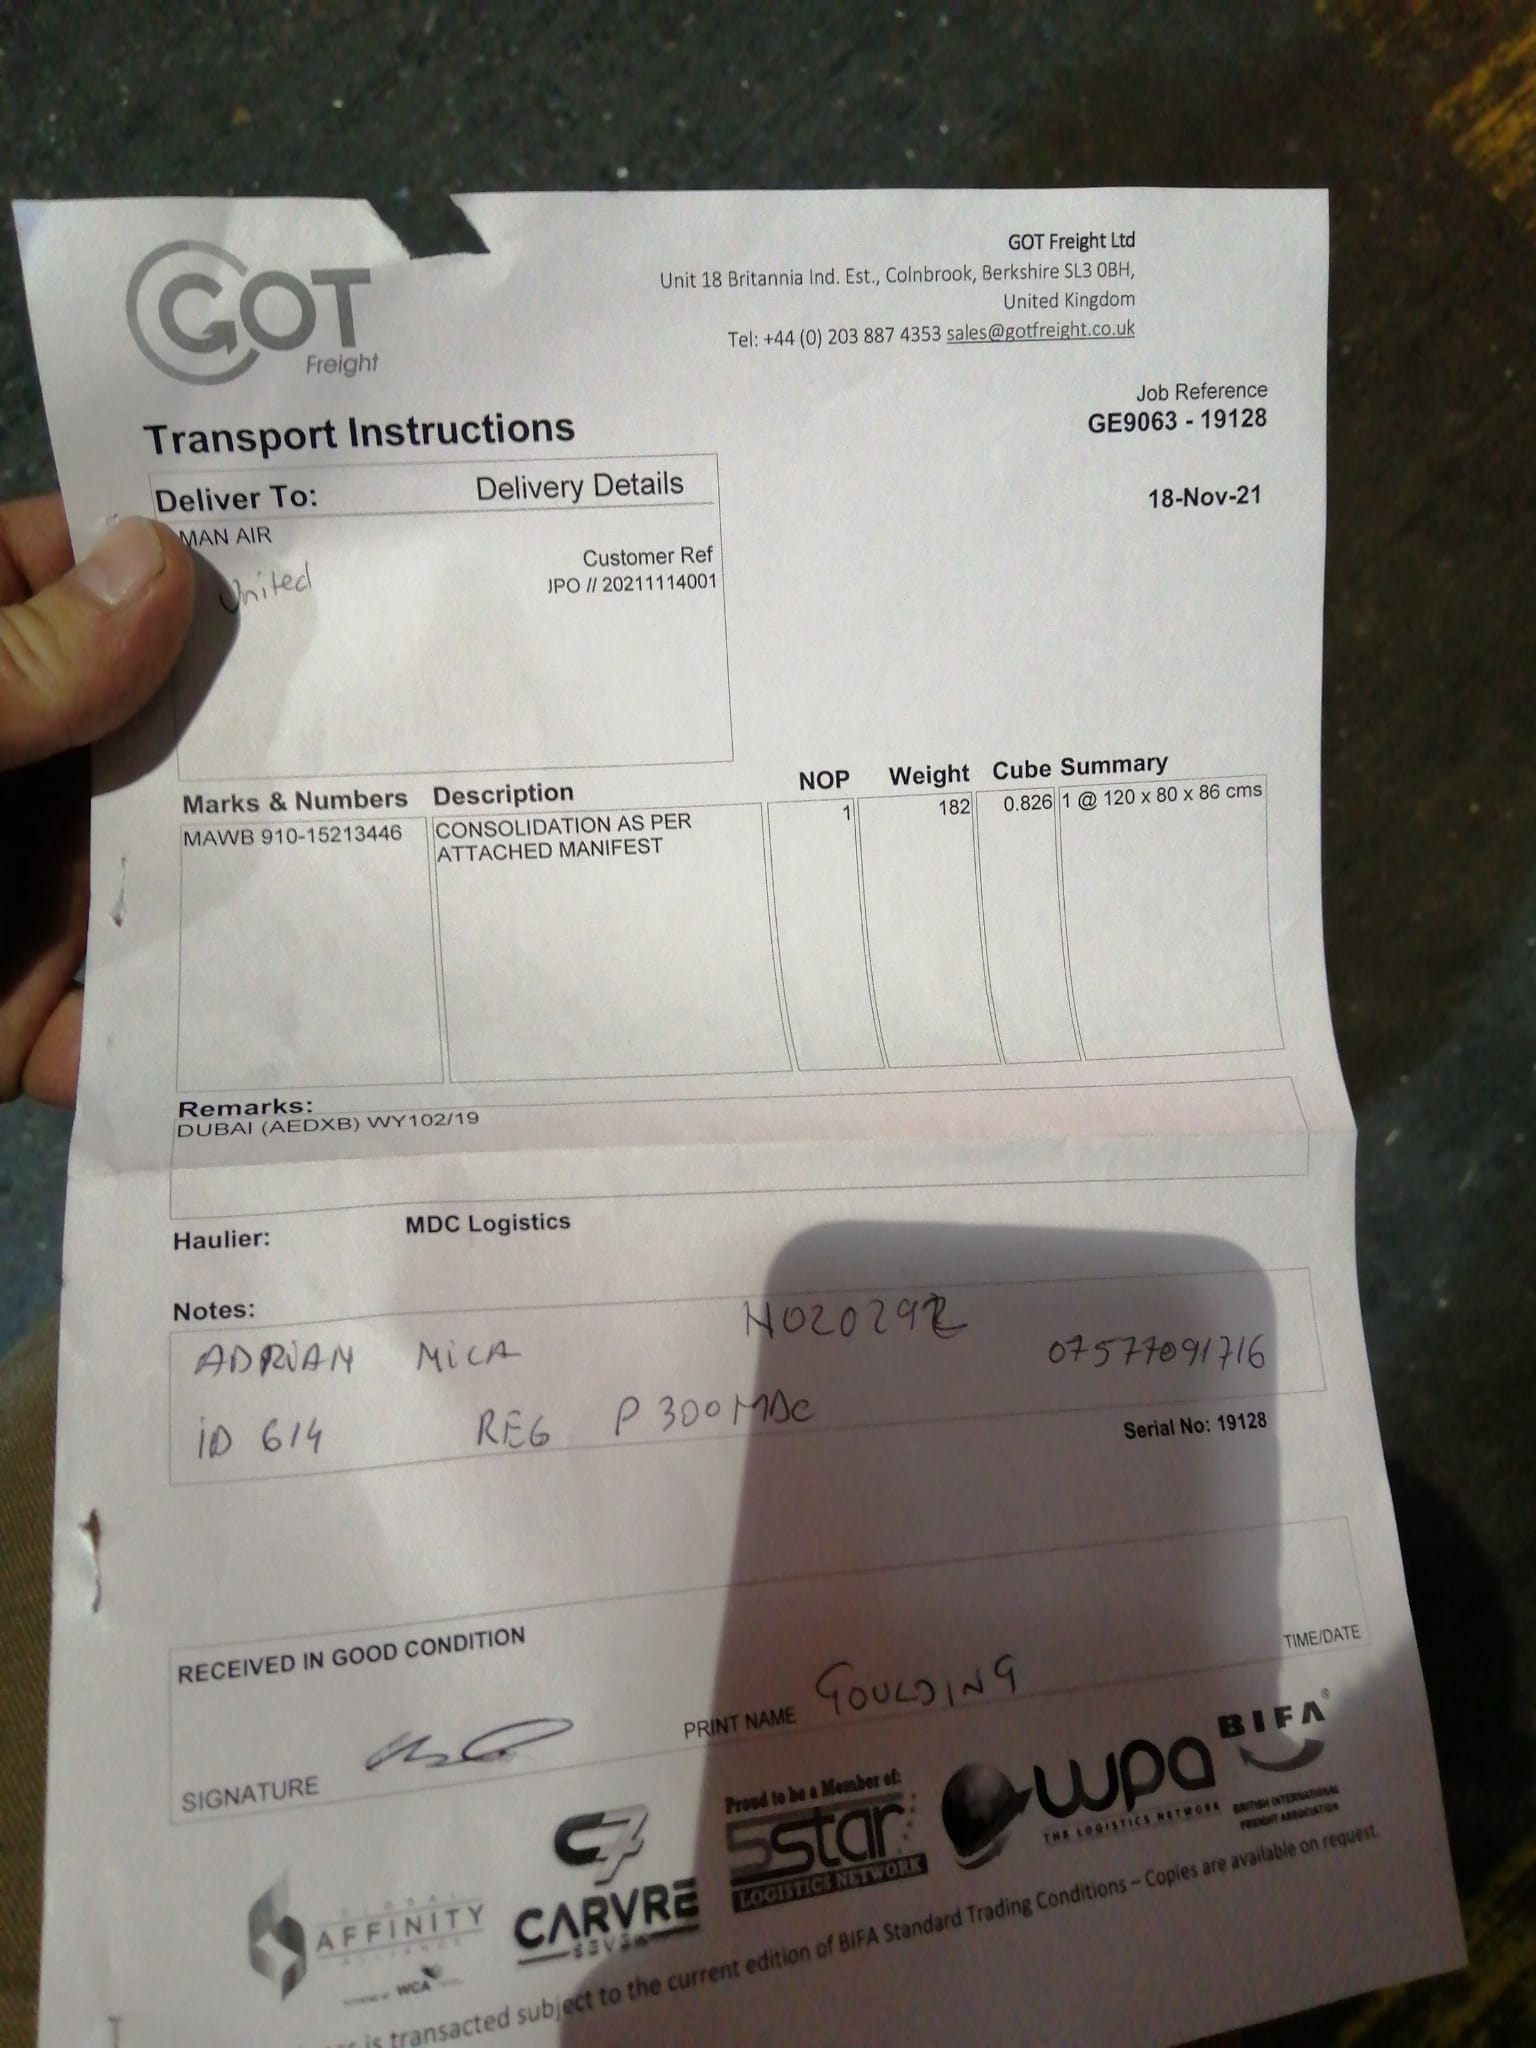 GOT
Freight
GOT Freight Ltd
Unit 18 Britannia Ind. Est., Colnbrook, Berkshire SL3 0BH,
United Kingdom
Tel: +44 (0) 203 887 4353 sales@gotfreight.co.uk
Job Reference
GE9063 - 19128
18-Nov-21
Transport Instructions
Deliver To: Delivery Details
MAN AIR
United
Customer Ref
JPO // 20211114001
Marks & Numbers Description NOP Weight Cube Summary
MAWB 910-15213446 CONSOLIDATION AS PER 1 182 0.826 1 @ 120 x 80 x 86 cms
ATTACHED MANIFEST
Remarks:
DUBAI (AEDXB) WY102/19
Haulier: MDC Logistics
Notes:
ADRIAN MICA 07577091716
ID 614 REG P300MDC
Serial No: 19128
RECEIVED IN GOOD CONDITION
SIGNATURE PRINT NAME GOULDING TIME/DATE
AFFINITY
WCA
C7
CARVRE
SEVEN
Proud to be a Member of:
5star
LOGISTICS NETWORK
wpa
THE LOGISTICS NETWORK
BIFA®
BRITISH INTERNATIONAL
FREIGHT ASSOCIATION
is transacted subject to the current edition of BIFA Standard Trading Conditions – Copies are available on request.